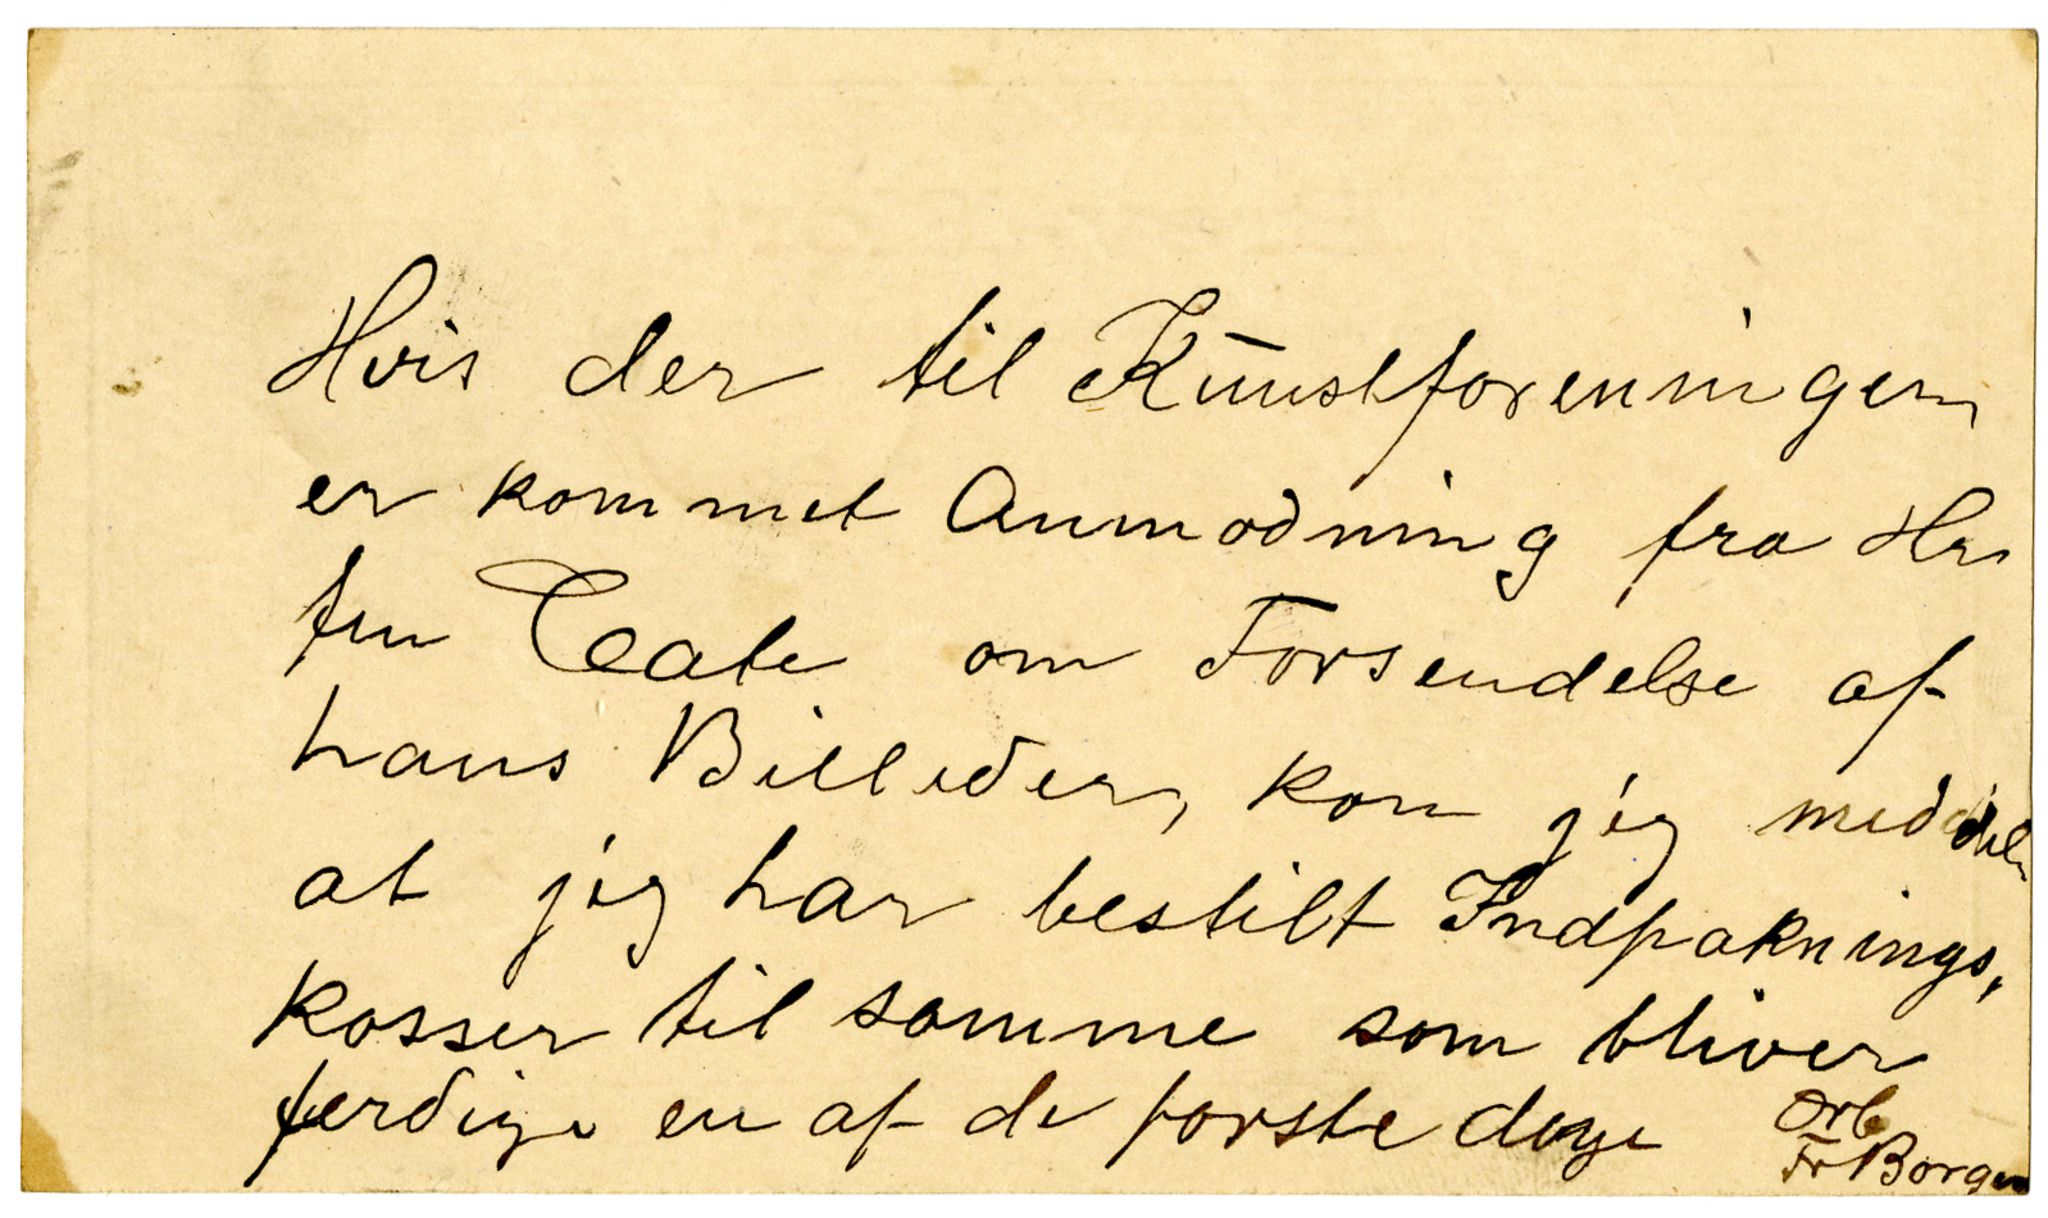 Hvis der til Kunstforeningen
er kommet Anmodning fra Hr
ten Cate om Forsendelse af
hans Billeder, kan jeg meddele
at jeg har bestilt Indpaknings,
kasser til samme som bliver
færdige en af de første dage
Ærb
Fr Borgen